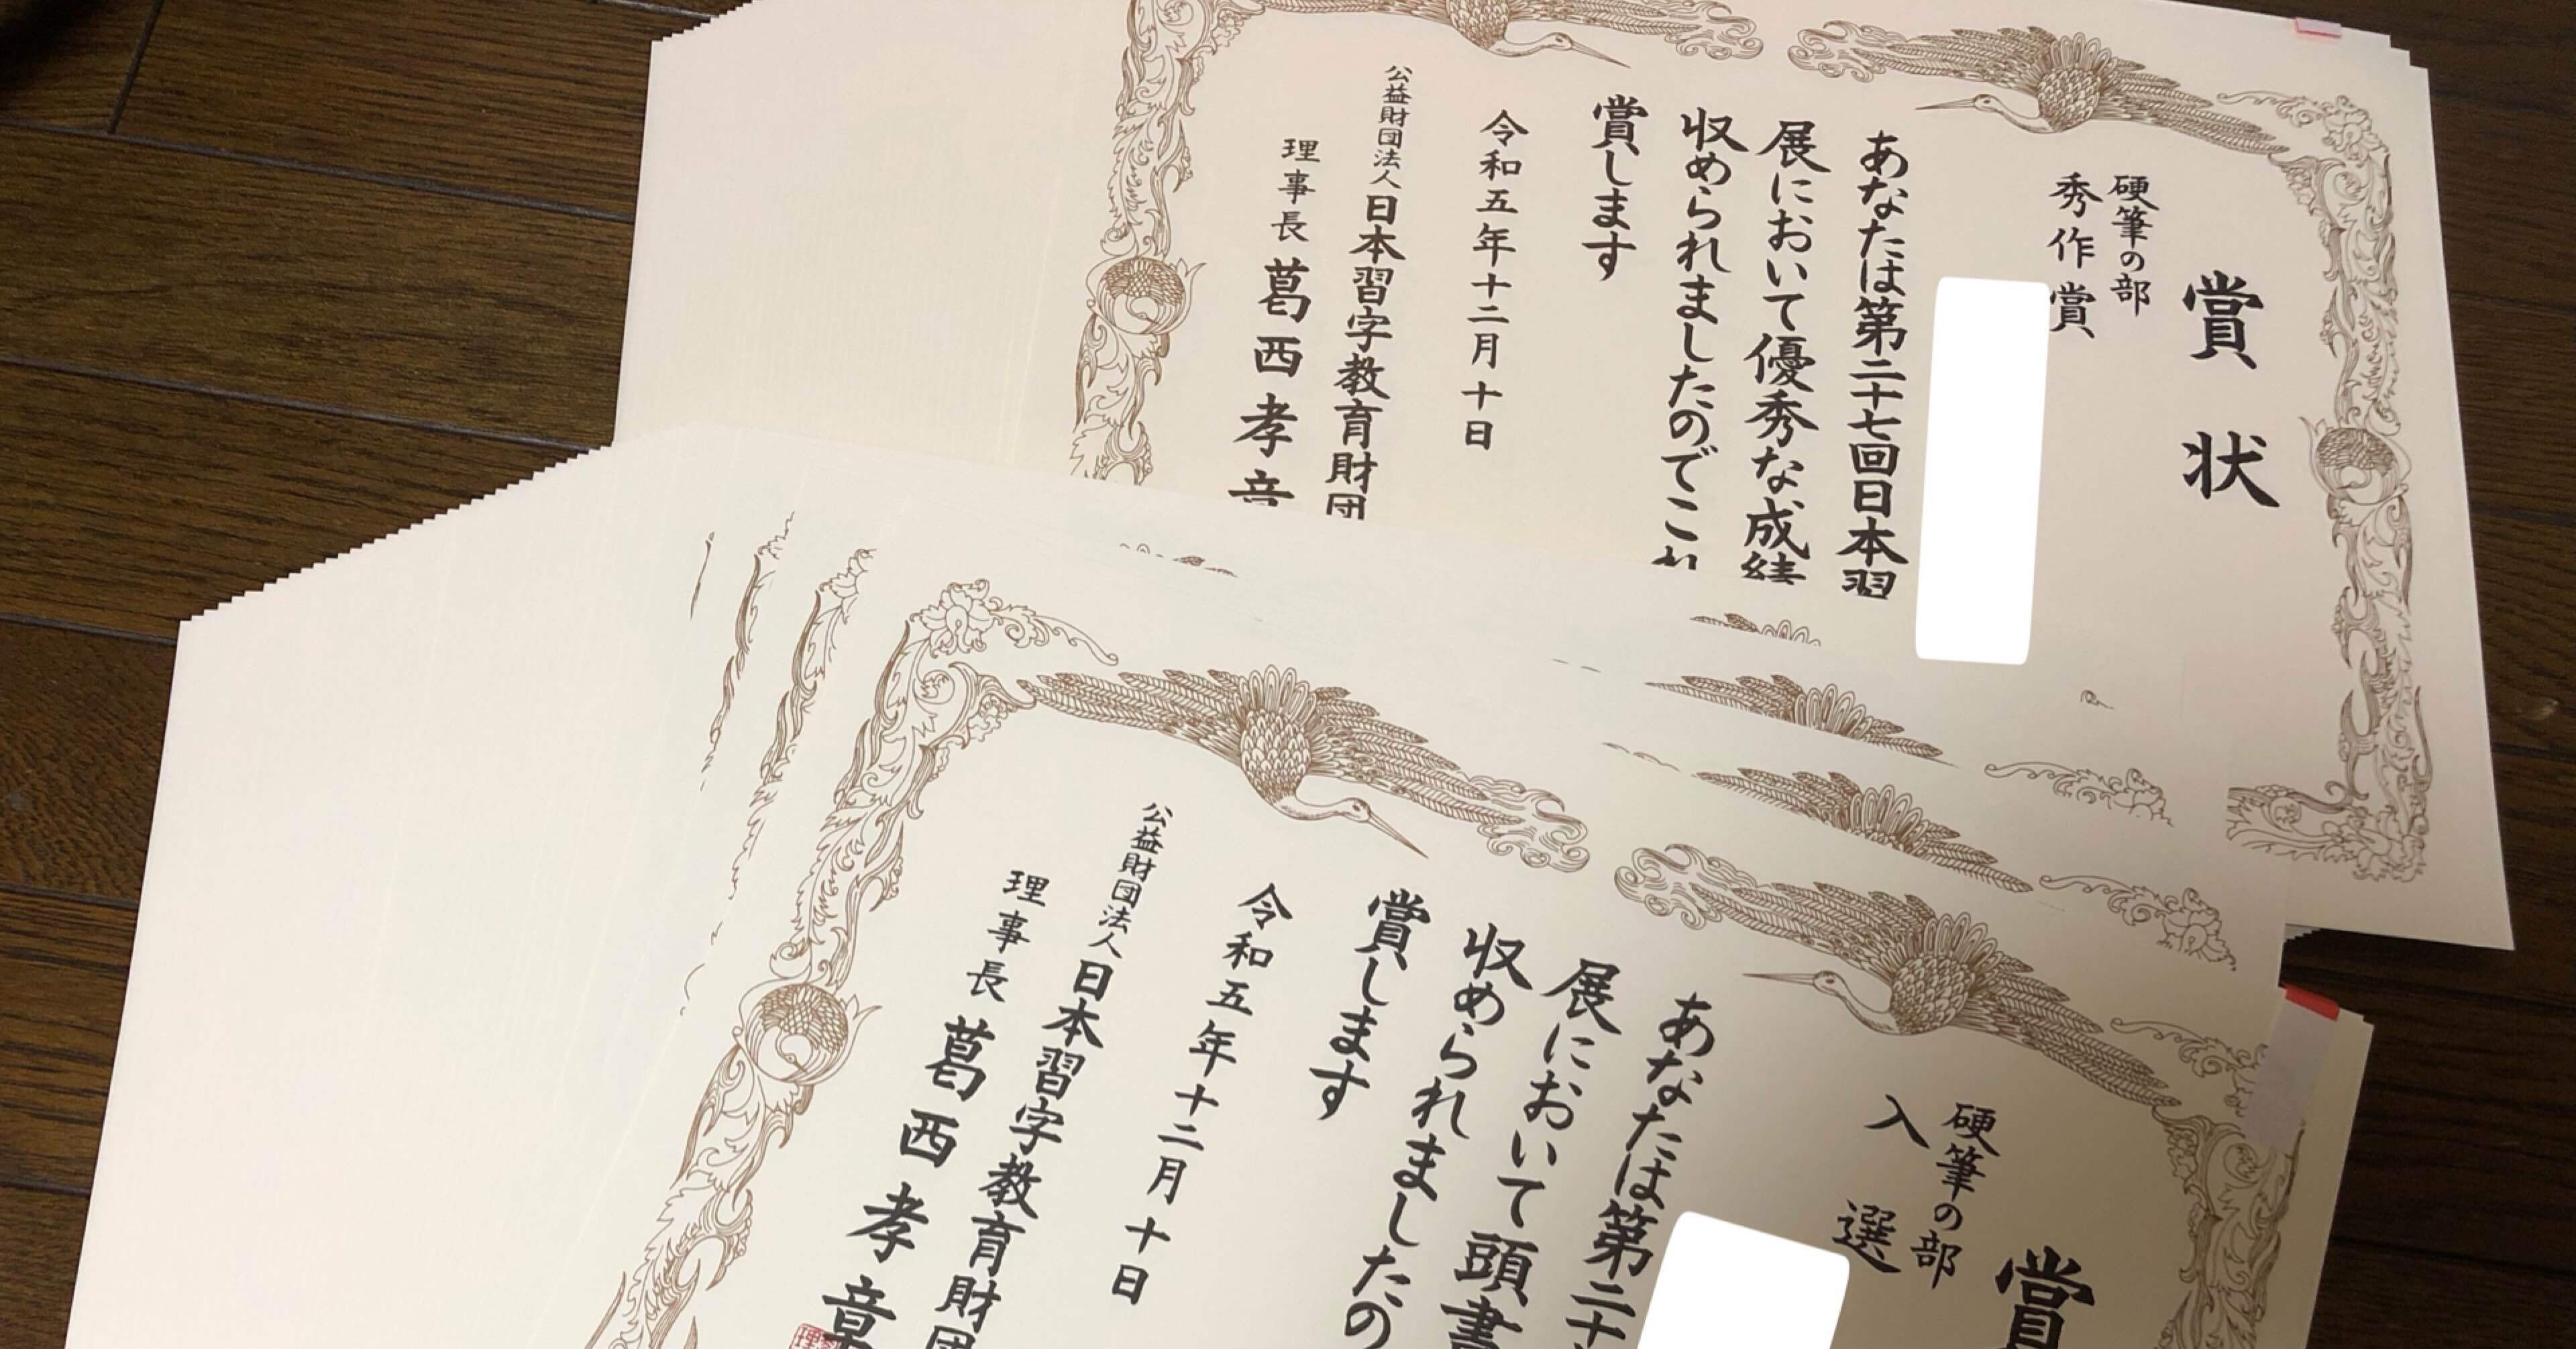 賞状
硬筆の部
秀作賞
あなたは第二十七回日本習
展において優秀な成績
収められましたのでこれ
賞します
令和五年十二月十日
公益財団法人日本習字教育財団
理事長 葛西孝章
賞
硬筆の部
入選
あなたは第二十
展において頭書
収められましたの
賞します
令和五年十二月十日
公益財団法人日本習字教育財団
理事長 葛西孝章